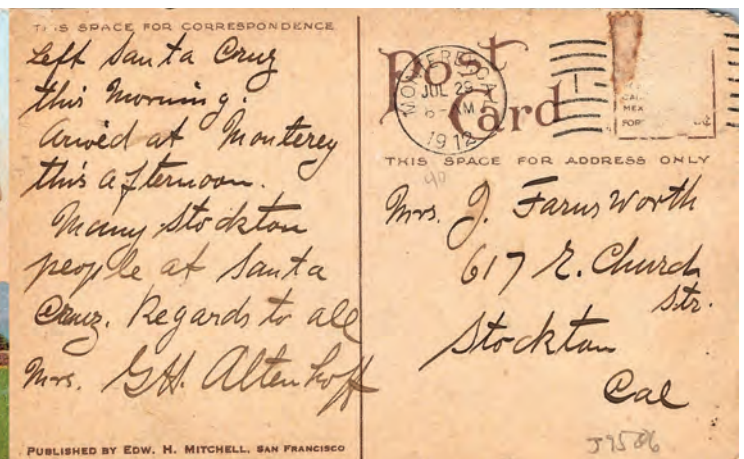 THIS SPACE FOR CORRESPONDENCE
Left Santa Cruz
this Morning.
Arived at Monterey
this afternoon.
Many Stockton
people at Santa
Cruz. Regards to all
Mrs. G.H. Altenhoff
PUBLISHED BY EDW. H. MITCHELL, SAN FRANCISCO
Post
Card
MONTEREY, CAL.
JUL 29
6- M
1912
MEX
FOR
THIS SPACE FOR ADDRESS ONLY
40
Mrs. J. Farnsworth
617 E. Church
Str.
Stockton
Cal